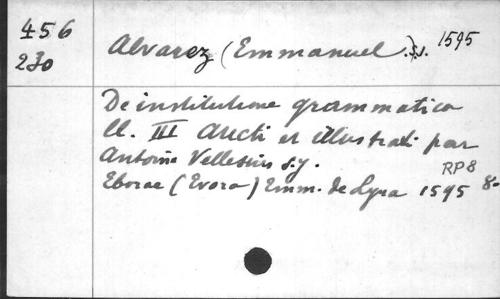 456
230
Alvarez (Emmanuel) s.j. 1595
De institutione grammatica
ll. III Aucti et illustrati par
Antoine Vellesius s.j.
RP8
Eborae (Evora) Emm. de Lyra 1595 8o